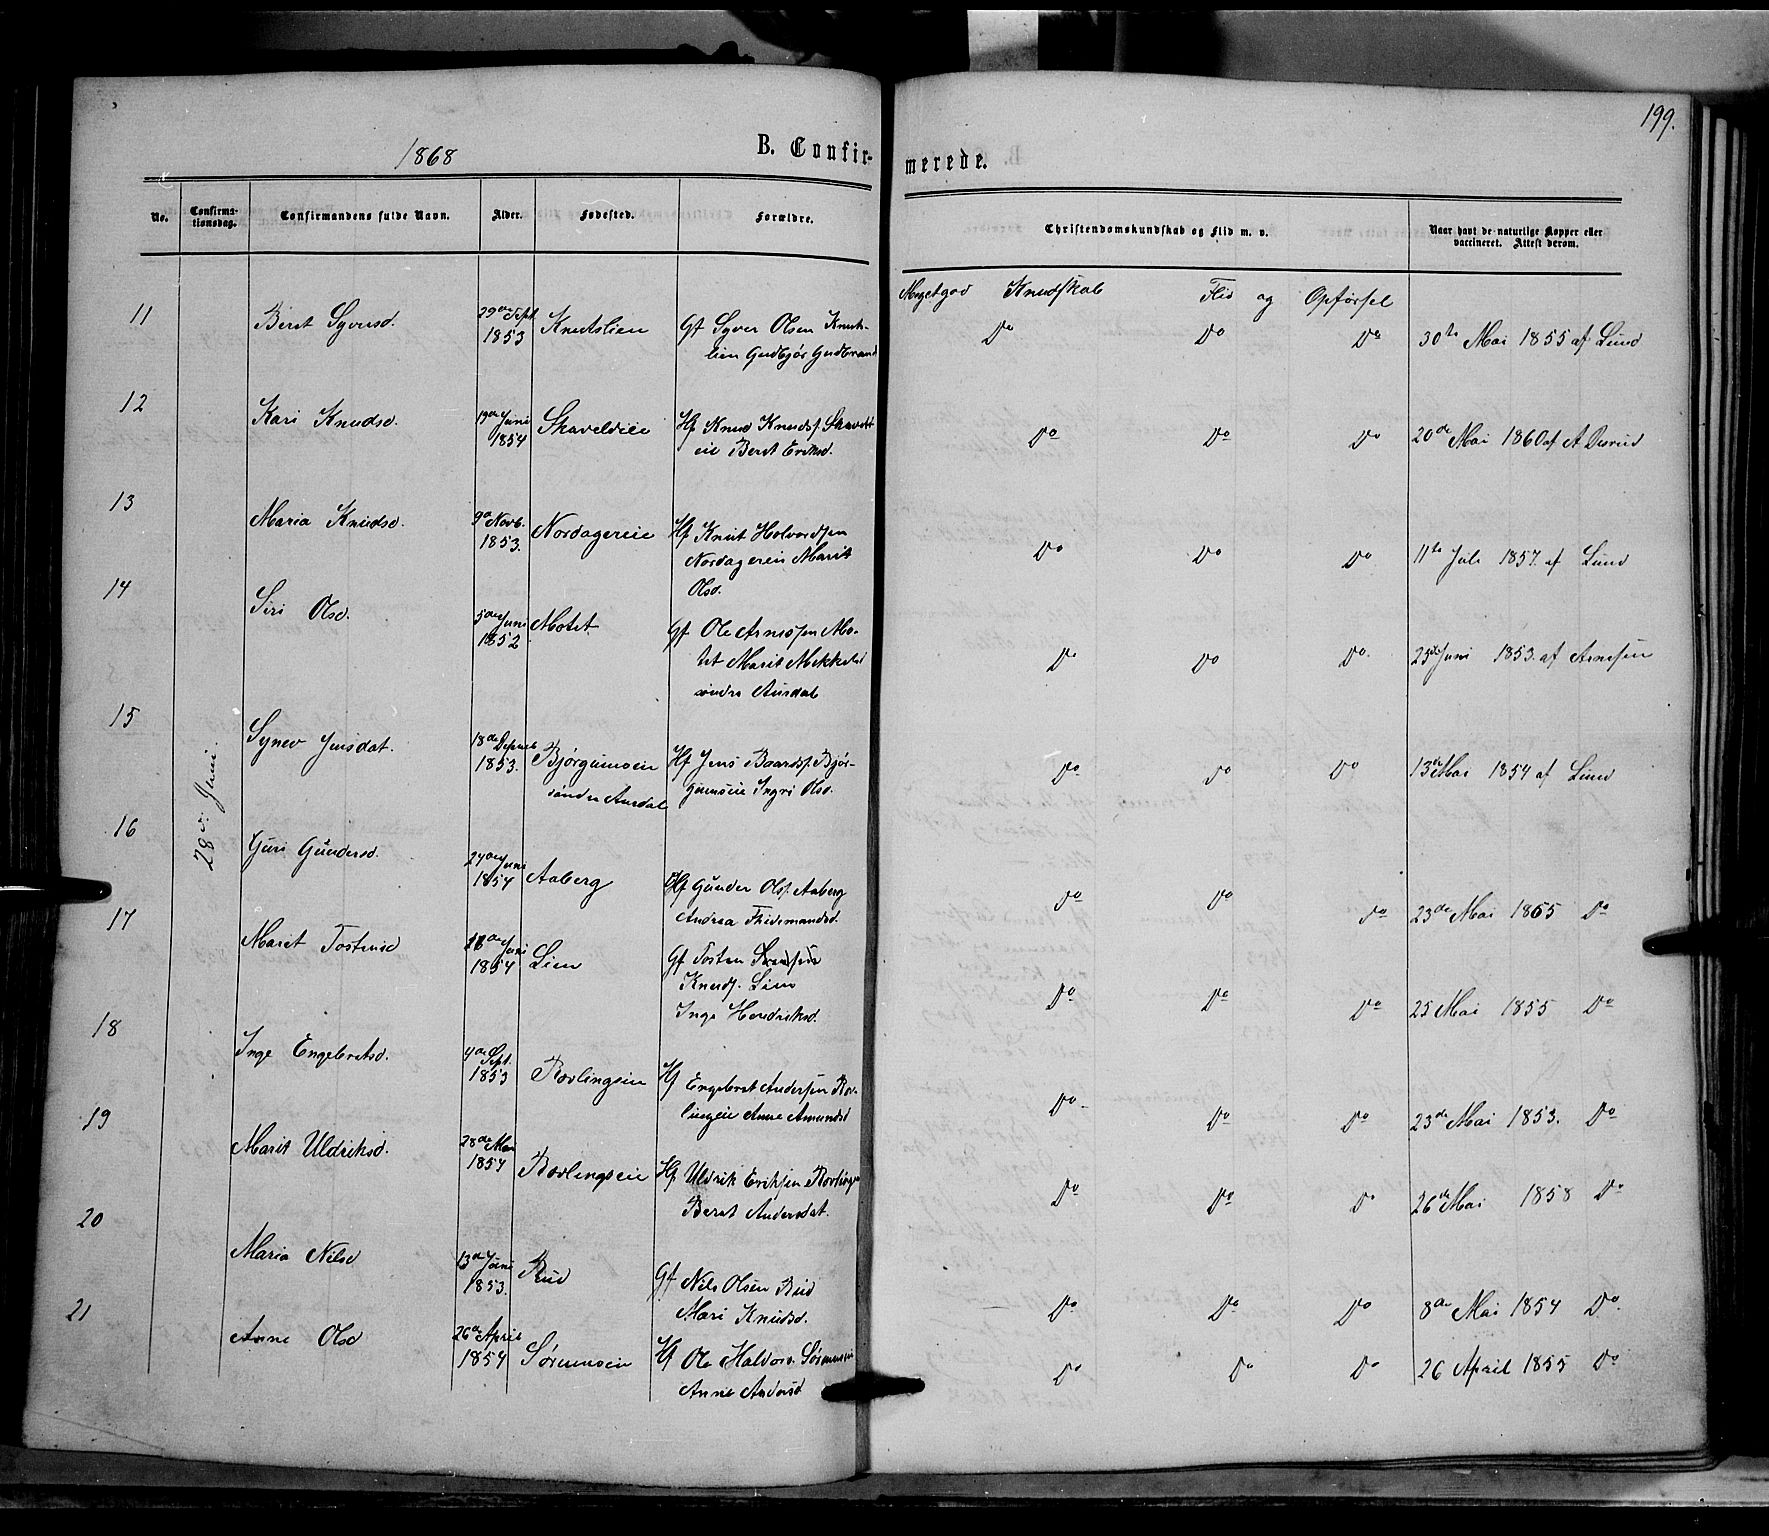 199.
1868
B. Confirmerede.
No. Confirmationsdag. Confirmandens fulde Navn. Alder. Fødested. Forældre. Christendomskundskab og Flid m. v. Naar havt de naturlige Kopper eller vaccineret. Attest derom.
Megetgod Kundskab Flid og Opførsel
28de Juni.
11 Berit Syversd. 29de Sept 1853 Knutslien Gf Syver Olsen Knuts-
lien Gudbjør Gudbrand
Do Do Do 30te Mai 1855 af Lund
12 Kari Knudsd. 19de Juni 1854 Skaveldeie Hf Knud Knuds. Skaveld
eie Berit Eriksd.
Do Do Do 20de Mai 1860 af A
13 Maria Knudsd. 9de Novb. 1853. Nordagereie Hf Knut Halvordsen
Nordagereie Marit
Olsd.
Do Do Do 11te Juli 1857. af Lund
14 Siri Olsd. 5de Juni 1852 Motet Gf Ole Arnesen Mo-
tet Marit Mikkelsd
søndre Aurdal
Do Do Do 25de Juni 1853. af Arnesen
15 Synev Jensdat. 18de Decmb 1853. Bjørgumseie
søndre Aurdal
Hf Jens Baards. Bjør-
gumseie Ingri Olsd.
Do Do Do 13de Mai 1854 af Lund
16 Guri Gundersd. 24de Juni 1854 Aaberg Hf Gunder Ols. Aaberg
Andrea Thidemandsd.
Do Do Do 23de Mai 1865 Do
17 Marit Tostensd 18de Juni 1854 Lien Gf Tosten
Knuds. Lien
Inge Hendriksd.
Do Do Do 25 Mai 1855 Do
18 Inge Engebretsd. 4de Sept. 1853 Røvlingseie Hf Engebret Andersen Røv-
lingseie Anne Amundsd
Do Do Do 23de Mai 1853. Do
19 Marit Uldriksd. 28de Mai 1854 Røvlingseie Hf Uldrik Eriksen Røvlings
Berit Andersdat.
Do Do Do 26de Mai 1858 Do
20 Maria Nilsd 13de Juni 1853. Rud Gf Nils Olsen Rud
Mari Knudsd.
Do Do Do 8de Mai 1854 Do.
21 Anne Olsd 26de April 1854 Sørumseie Hf Ole Haldors. Sørumseie
Anne Andersd
Do Do Do 26 April 1855 Do